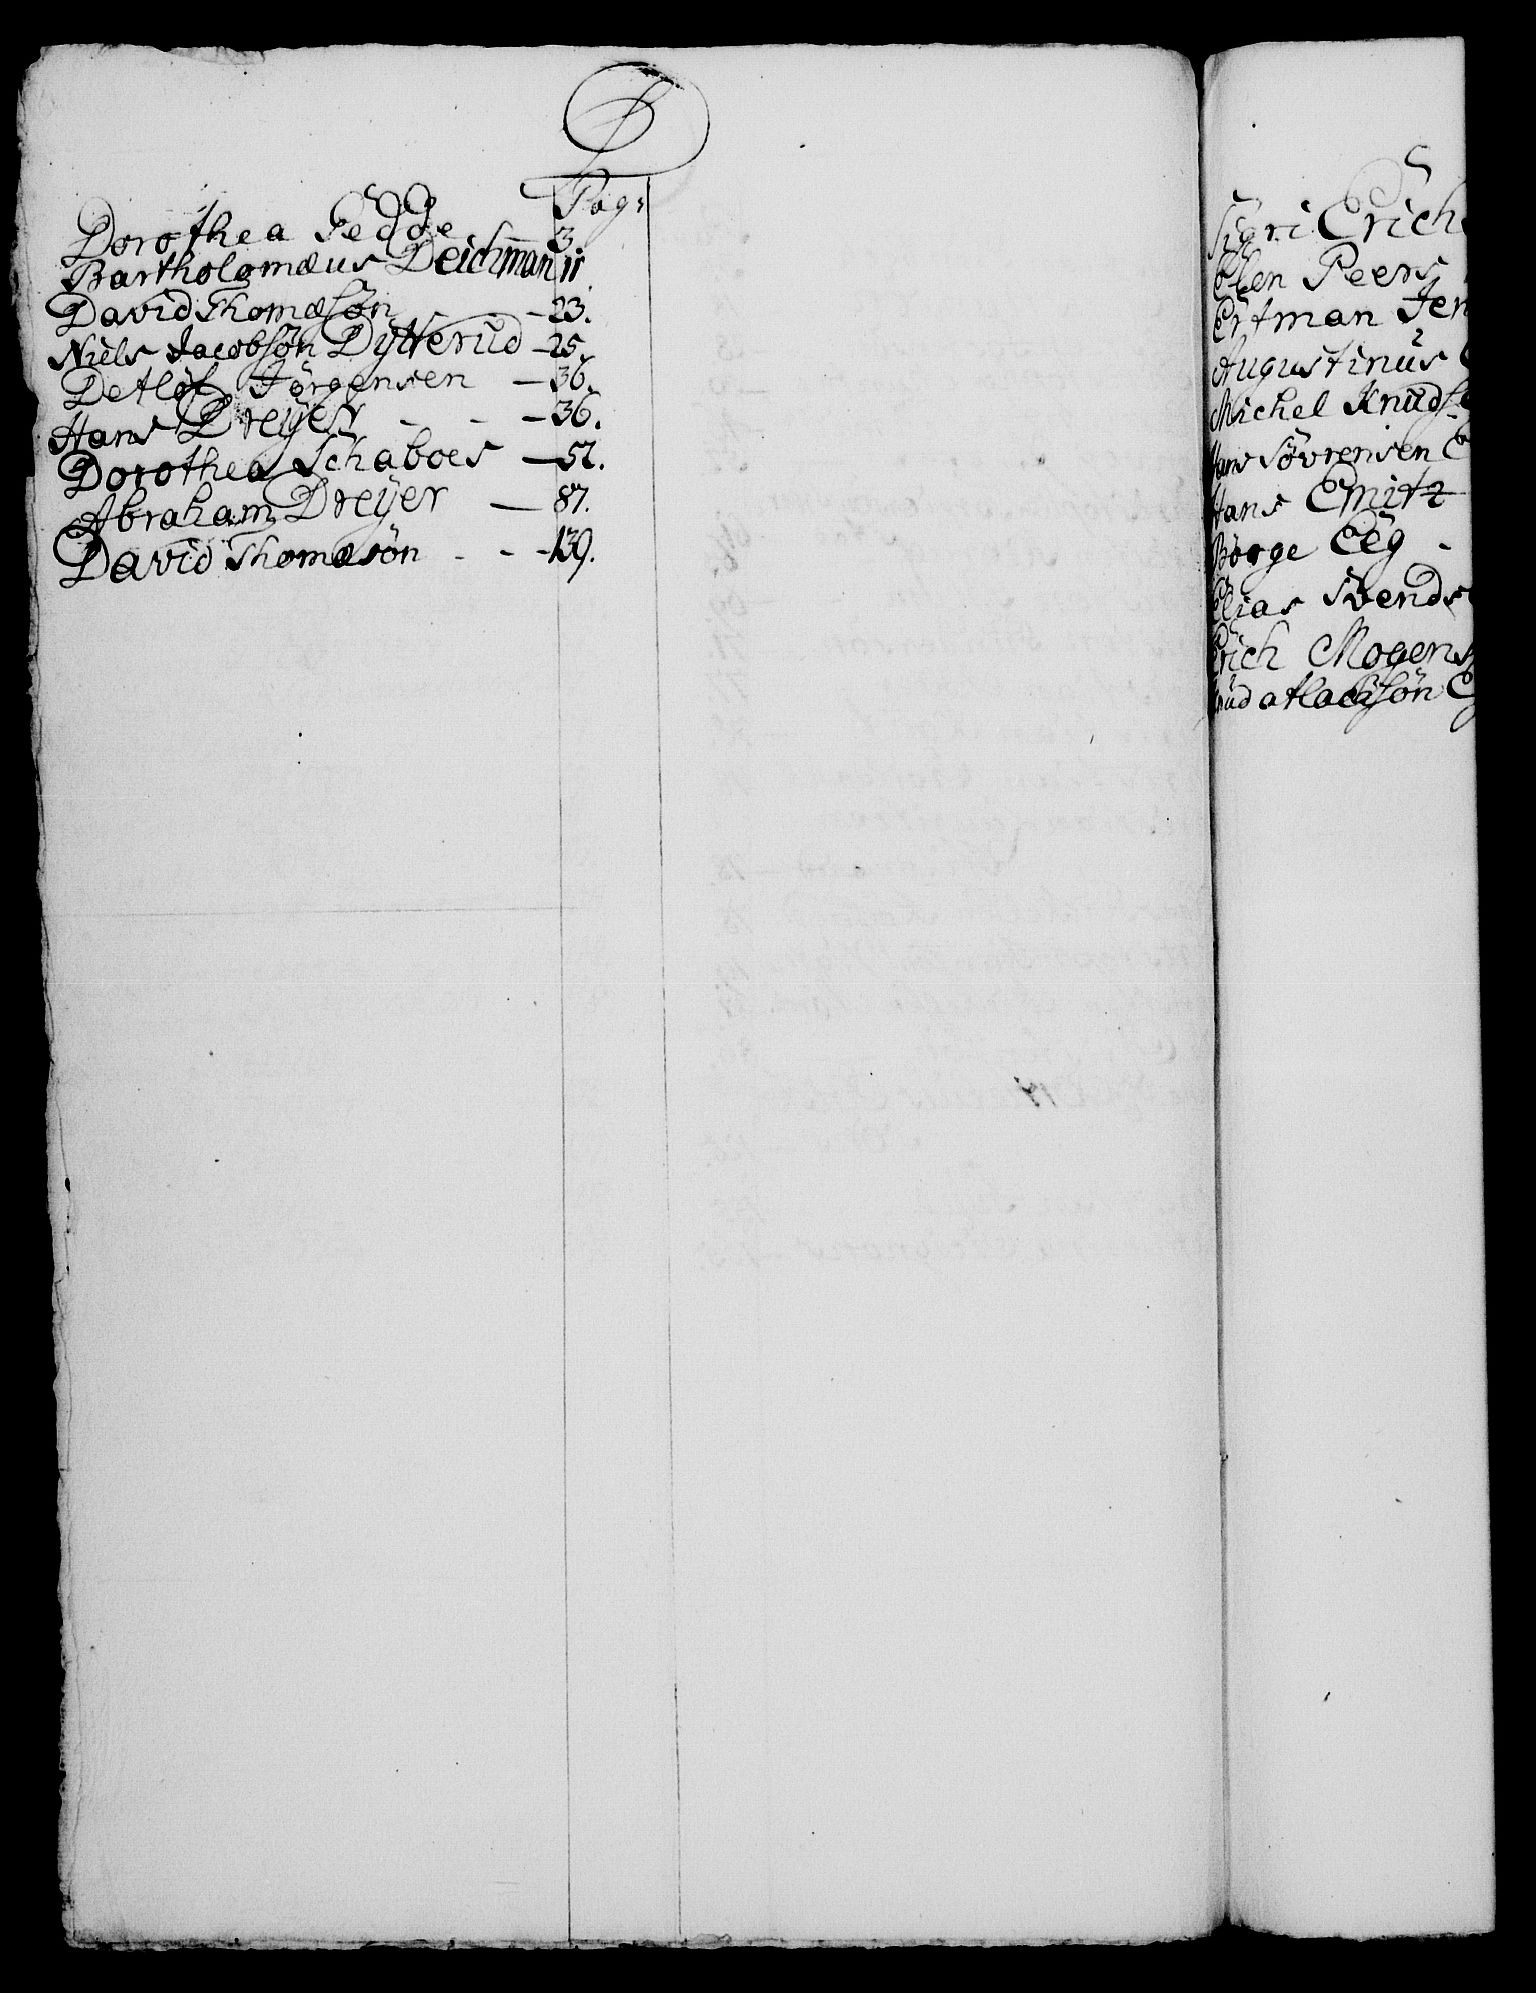 D
Pag:
Dorothea Fedde 3.
Bartholomæus Deichman 11.
David Thomæsøn - - 23.
Niels Jacobsøn Dytterud - 25.
Detlof Jørgensen - 36.
Hans Dreyer - - - 36.
Dorothea Schaboes - 57.
Abraham Dreÿer - 87.
David Thomæsøn - - - 139.
Sigri Erichs
Olen Peers
Ertman Jen
Augustinus
Michel Knuds
Hans Søvrensen
Hans Emitz
Børge Eeg -
Elias Svends
Erich Mogens